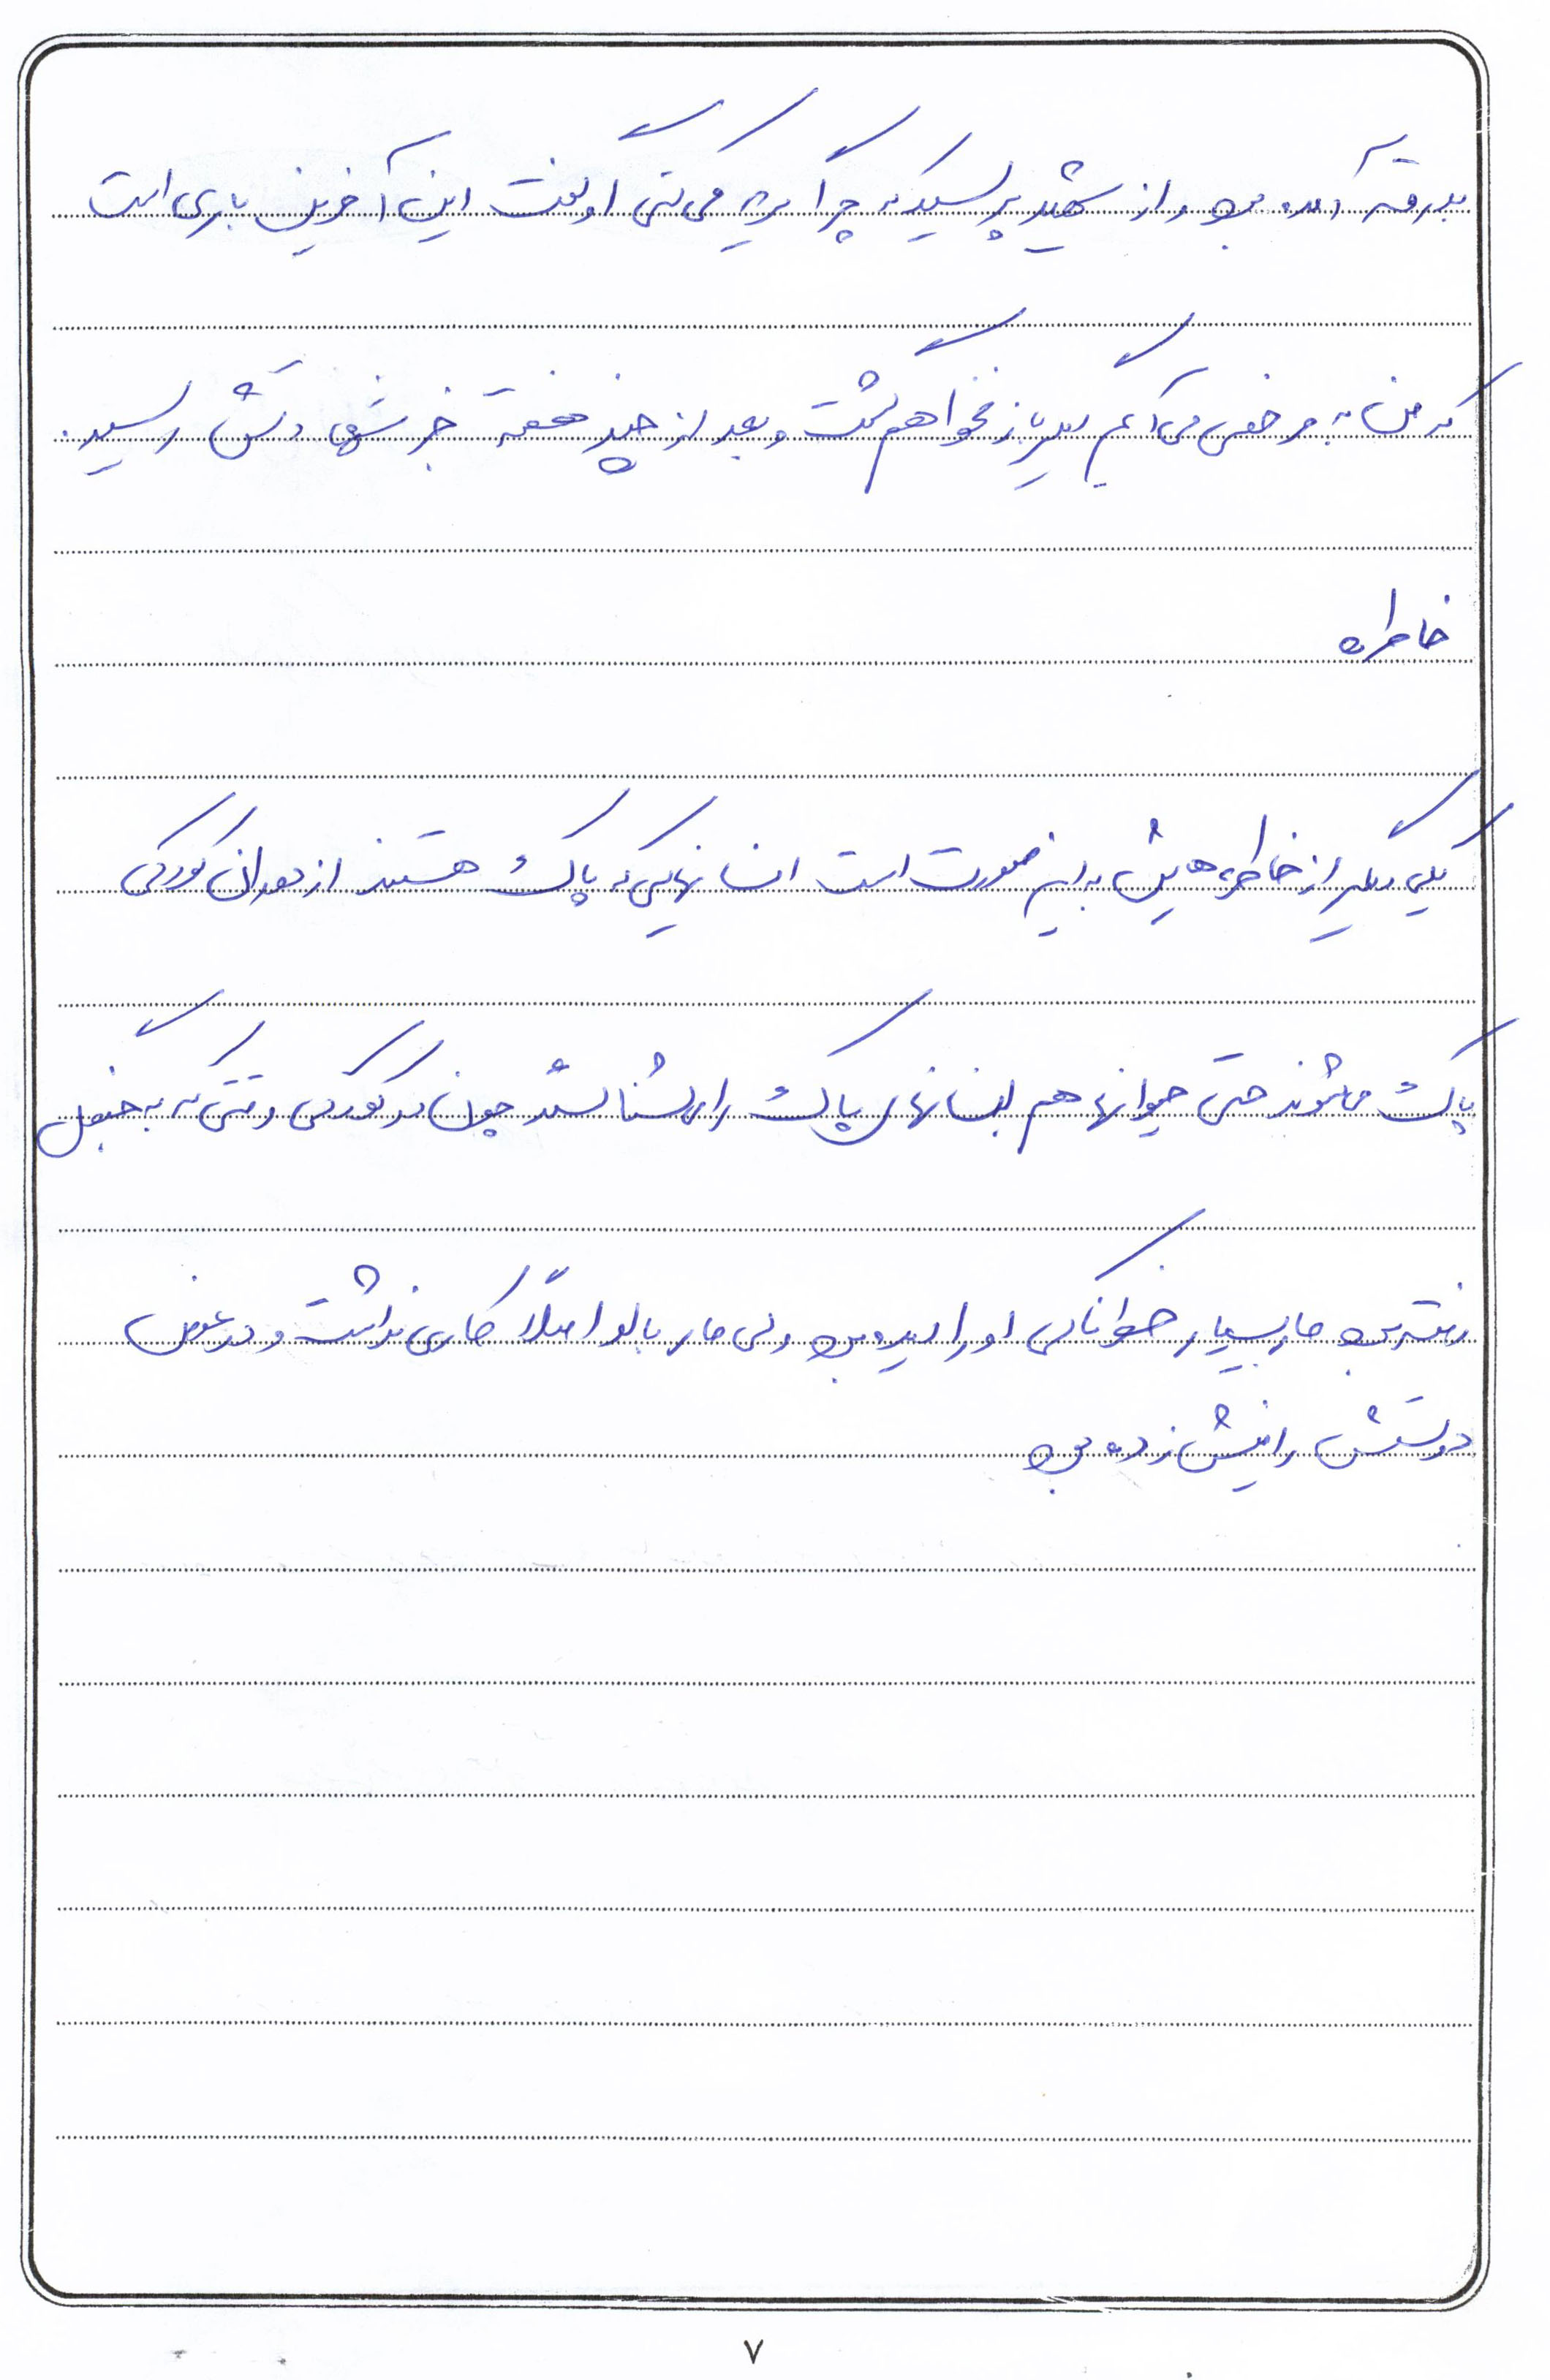 بدرقه آمده بود و از شهید پرسید که چرا گریه می کنی او گفت این آخرین باری است
که من به مرخصی می آیم دیگر باز نخواهم گشت و بعد از چند هفته خبر شهادتش رسید.
خاطره
یکی دیگر از خاطره هایش به این صورت است انسانهایی که پاک هستند از دوران کودکی
پاک می شوند حتی حیوانها هم انسانهای پاک را می شناسند چون در کودکی وقتی که به جنگل
رفته بود مار بسیار خطرناکی او را دیده بود ولی مار با او اصلاً کاری نداشت و در عوض
دوستش را نیش زده بود
۷